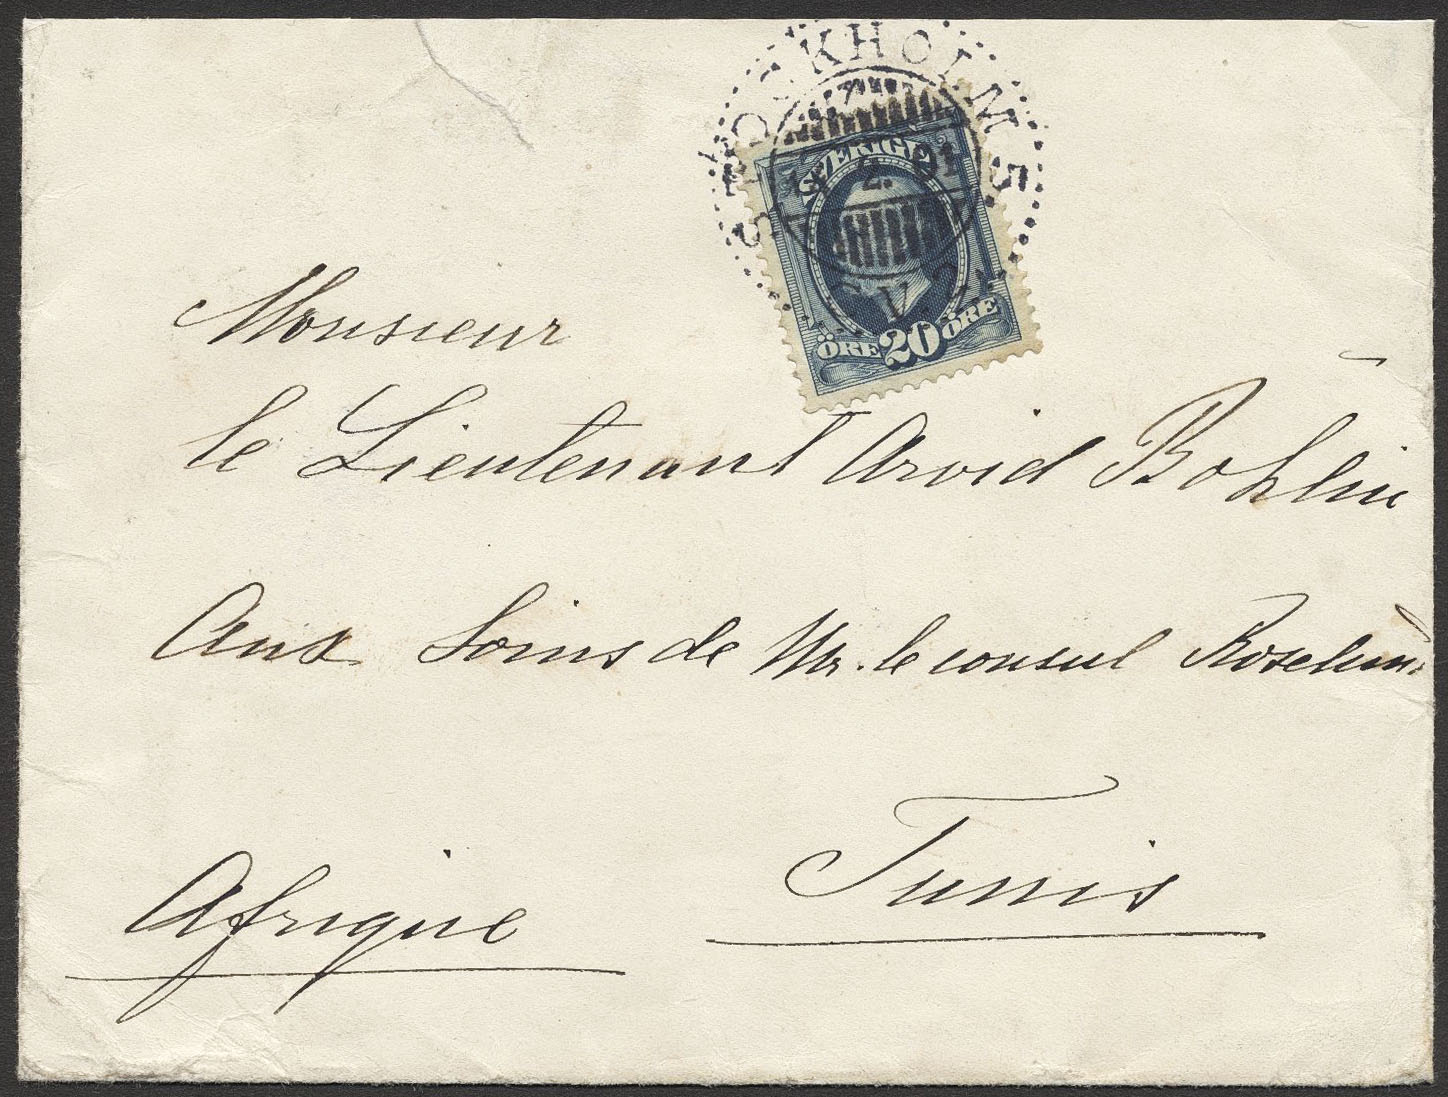 STOCKHOLM 5
2. 01
SVERIGE
ÖRE 20 ÖRE
Monsieur
le Lieutenant Arvid Bohlin
Aux Soins de Mr. le consul
Tunis
Afrique